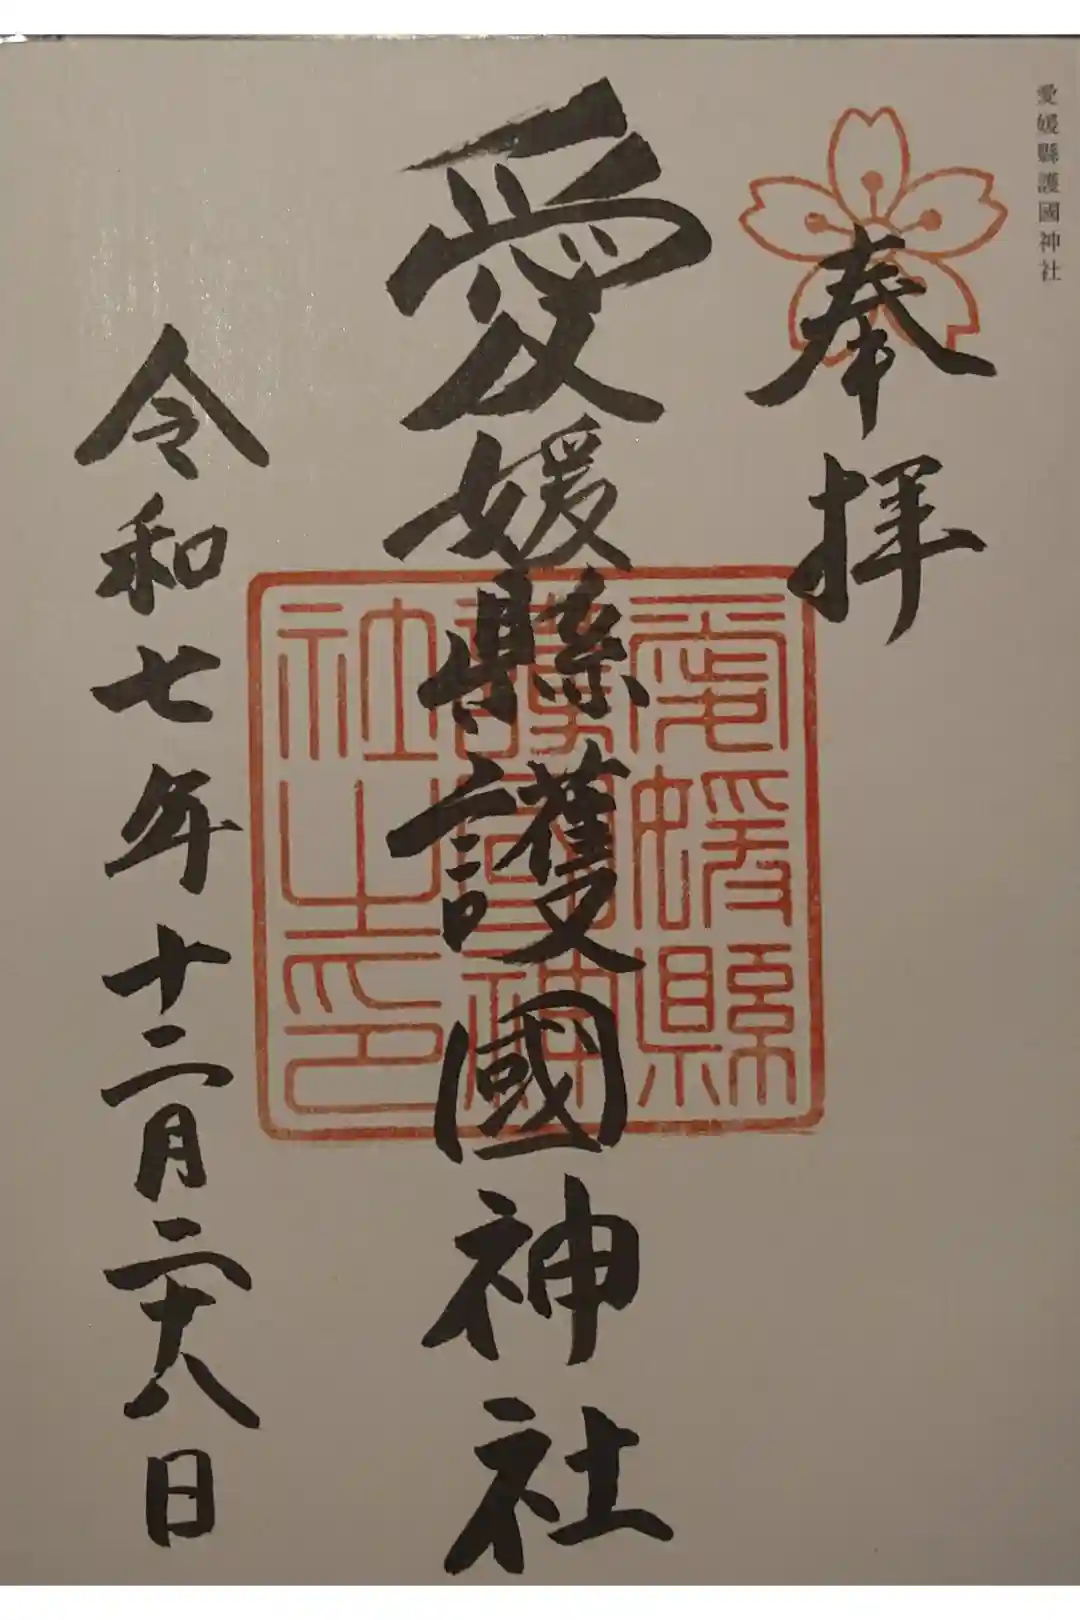 愛媛縣護國神社
奉拝
愛媛縣護國神社
愛媛縣
護國神
社之印
令和七年十二月二十八日